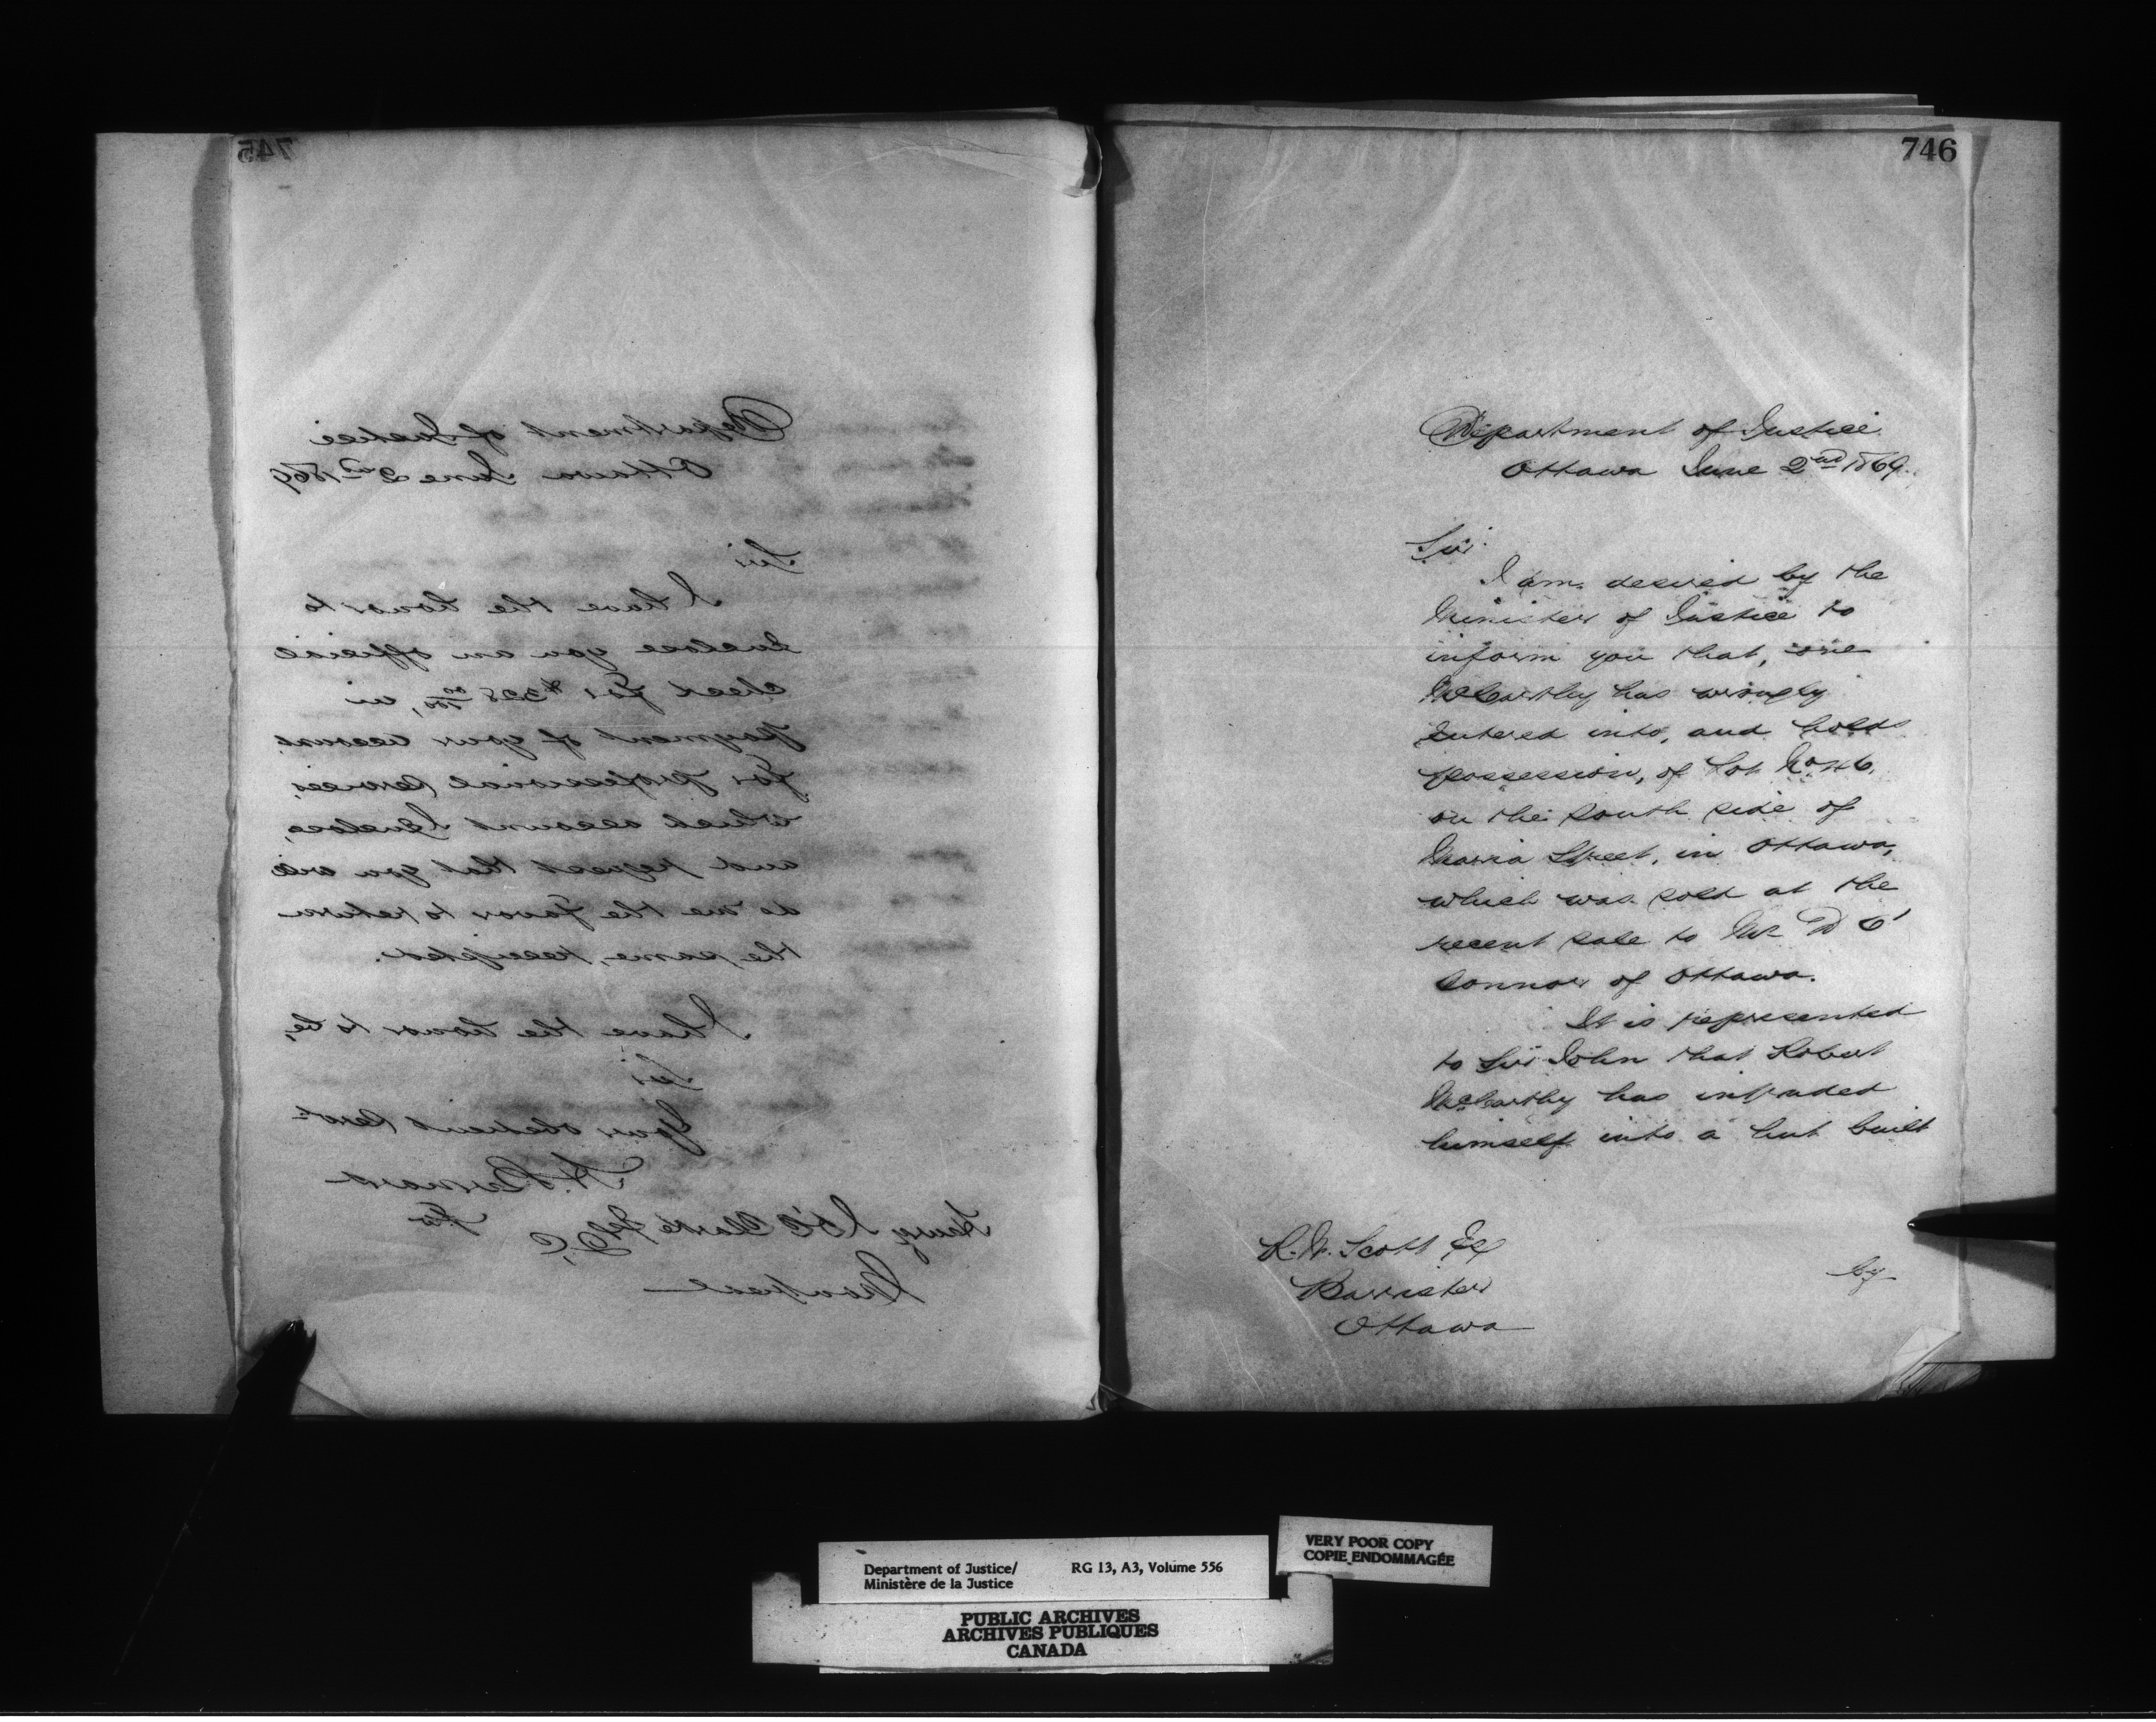 745
Department of Justice
Ottawa June 2nd 1869
Sir
I have the honor to
Enclose you an official
check for $328 00/100, in
payment of your account
for professional services,
which account I enclose,
and request that you will
do me the favor to return
the same, receipted.
I have the honor to be,
Sir
Your obedient Servt
H. Bernard
Henry J. Clarke Esq
Q.C.
Montreal
746
Department of Justice
Ottawa June 2nd 1869.
Sir
I am desired by the
Minister of Justice to
inform you that, one
McCarthy has wrongly
Entered into, and holds
possession, of Lot No
on the South side of
Maria Street, in Ottawa,
which was sold at the
recent sale to Mr D O'
Connor of Ottawa.
It is represented
to Sir John that Robert
McCarthy has intruded
himself into a hut built
by
R. W. Scott Esq
Barrister
Ottawa
VERY POOR COPY
COPIE ENDOMMAGÉE
Department of Justice/ RG 13, A3, Volume 556
Ministère de la Justice
PUBLIC ARCHIVES
ARCHIVES PUBLIQUES
CANADA